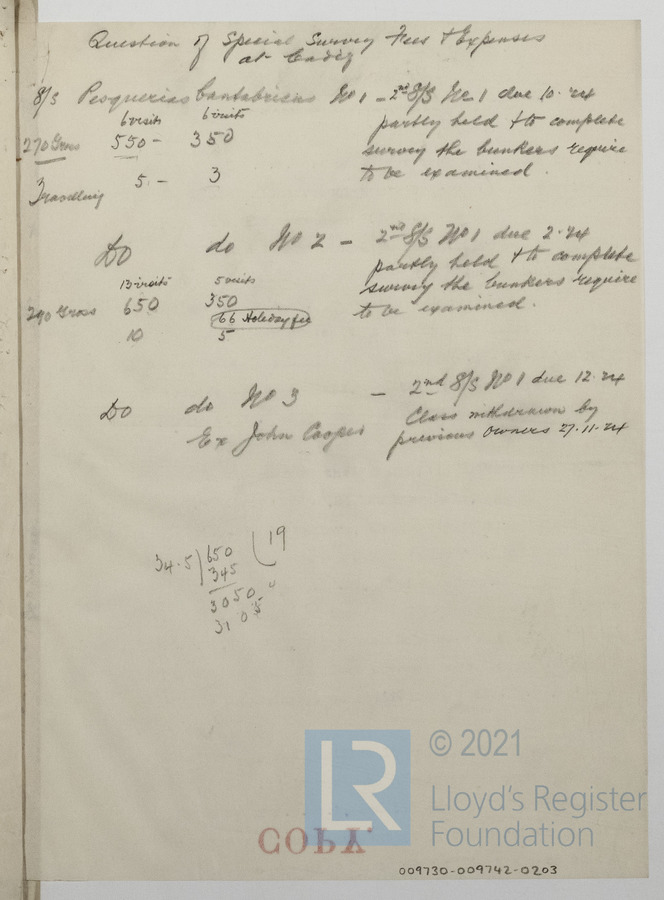 Question of Special Survey Fees & Expenses
at Cadiz
S/S Pesquerias Cantabricas No 1 - 2nd S/S No 1 due 10.24
6 visits 6 visits partly held & to complete
270 Gross 550 - 350 survey the bunkers require
Travelling 5.- 3 to be examined.
Do do No 2 - 2nd S/S No 1 due 2.24
13 visits 5 visits partly held & to complete
290 Gross 650 350 survey the bunkers require
66 Holiday fee to be examined.
10 5
Do do No 3 - 2nd S/S No 1 due 12.24
Ex John Cooper Class withdrawn by
previous owners 27.11.24
34.5) 650 ( 19
345
3050
3105
© 2021
LR
Lloyd's Register
Foundation
COPY
009730-009742-0203